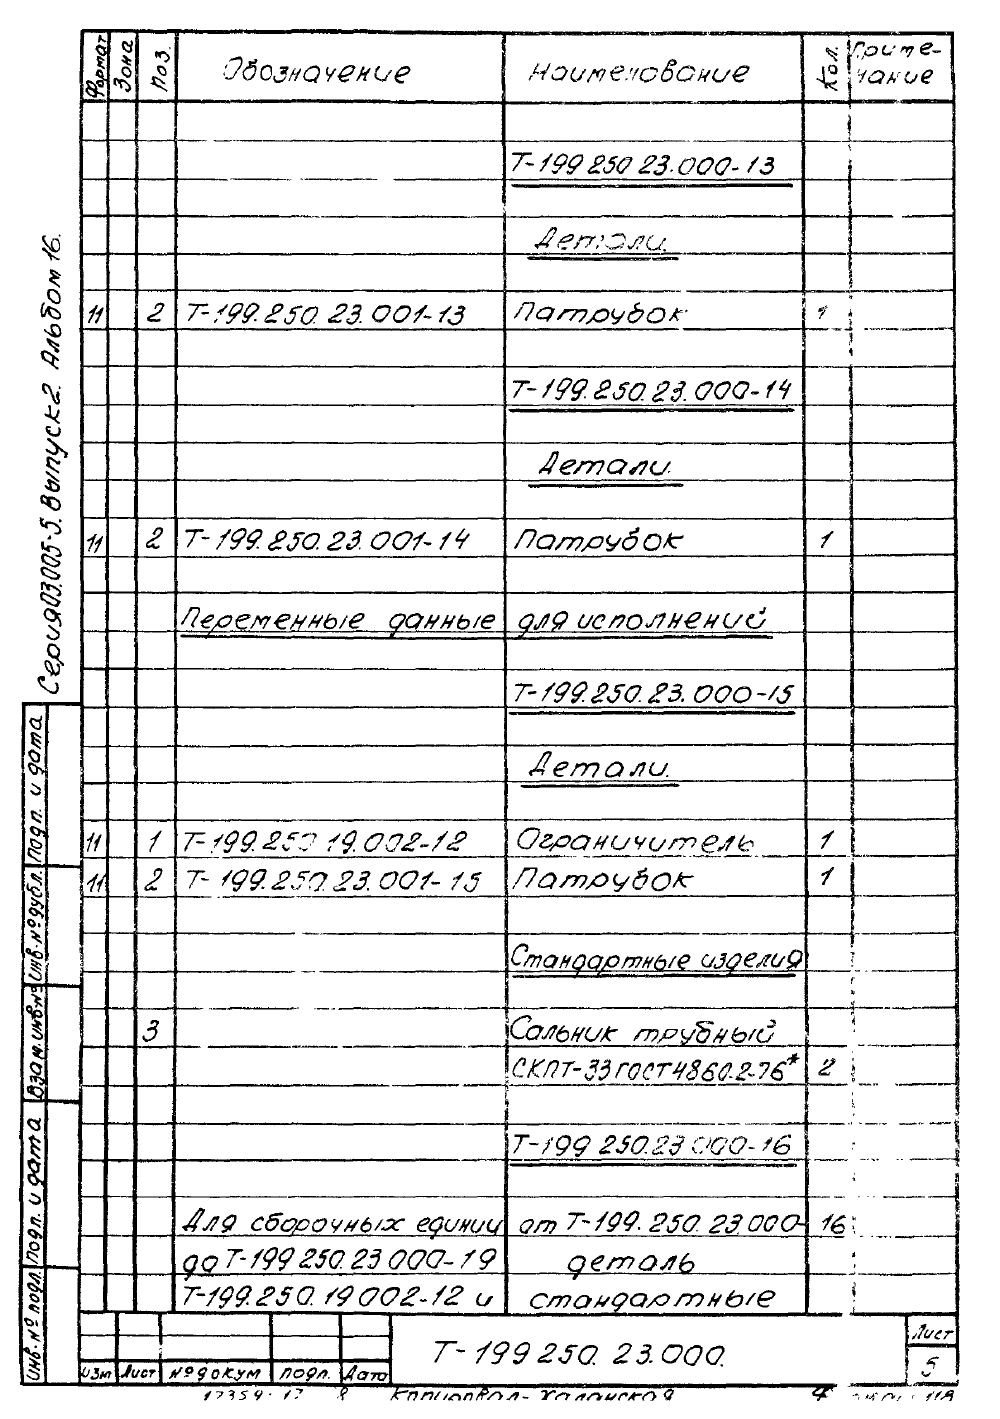 Формат Зона Поз. Обозначение Наименование Кол. Приме-
чание
Т-199 250 23.000-13
Детали.
11 2 Т-199.250.23.001-13 Патрубок 1
Т-199.250.23.000-14
Детали.
11 2 Т-199.250.23.001-14 Патрубок 1
Переменные данные для исполнений
Т-199.250.23.000-15
Детали.
11 1 Т-199.250 19.002-12 Ограничитель 1
11 2 Т-199.250.23.001-15 Патрубок 1
Стандартные изделия
3 Сальник трубный
СКПТ-33 ГОСТ 4860.2-76* 2
Т-199 250.23 000-16
Для сборочных единиц от Т-199.250.23.000-16
до Т-199 250.23 000-19 деталь
Т-199.250.19 002-12 и стандартные
Серия 03.005-5. Выпуск 2. Альбом 16.
Подп. и дата
Инв. № дубл.
Взам. инв. №
Подп. и дата
Инв. № подл.
Изм Лист № докум подп. Дата
Т-199 250. 23.000.
Лист
5
17359-17 8 Копировал-